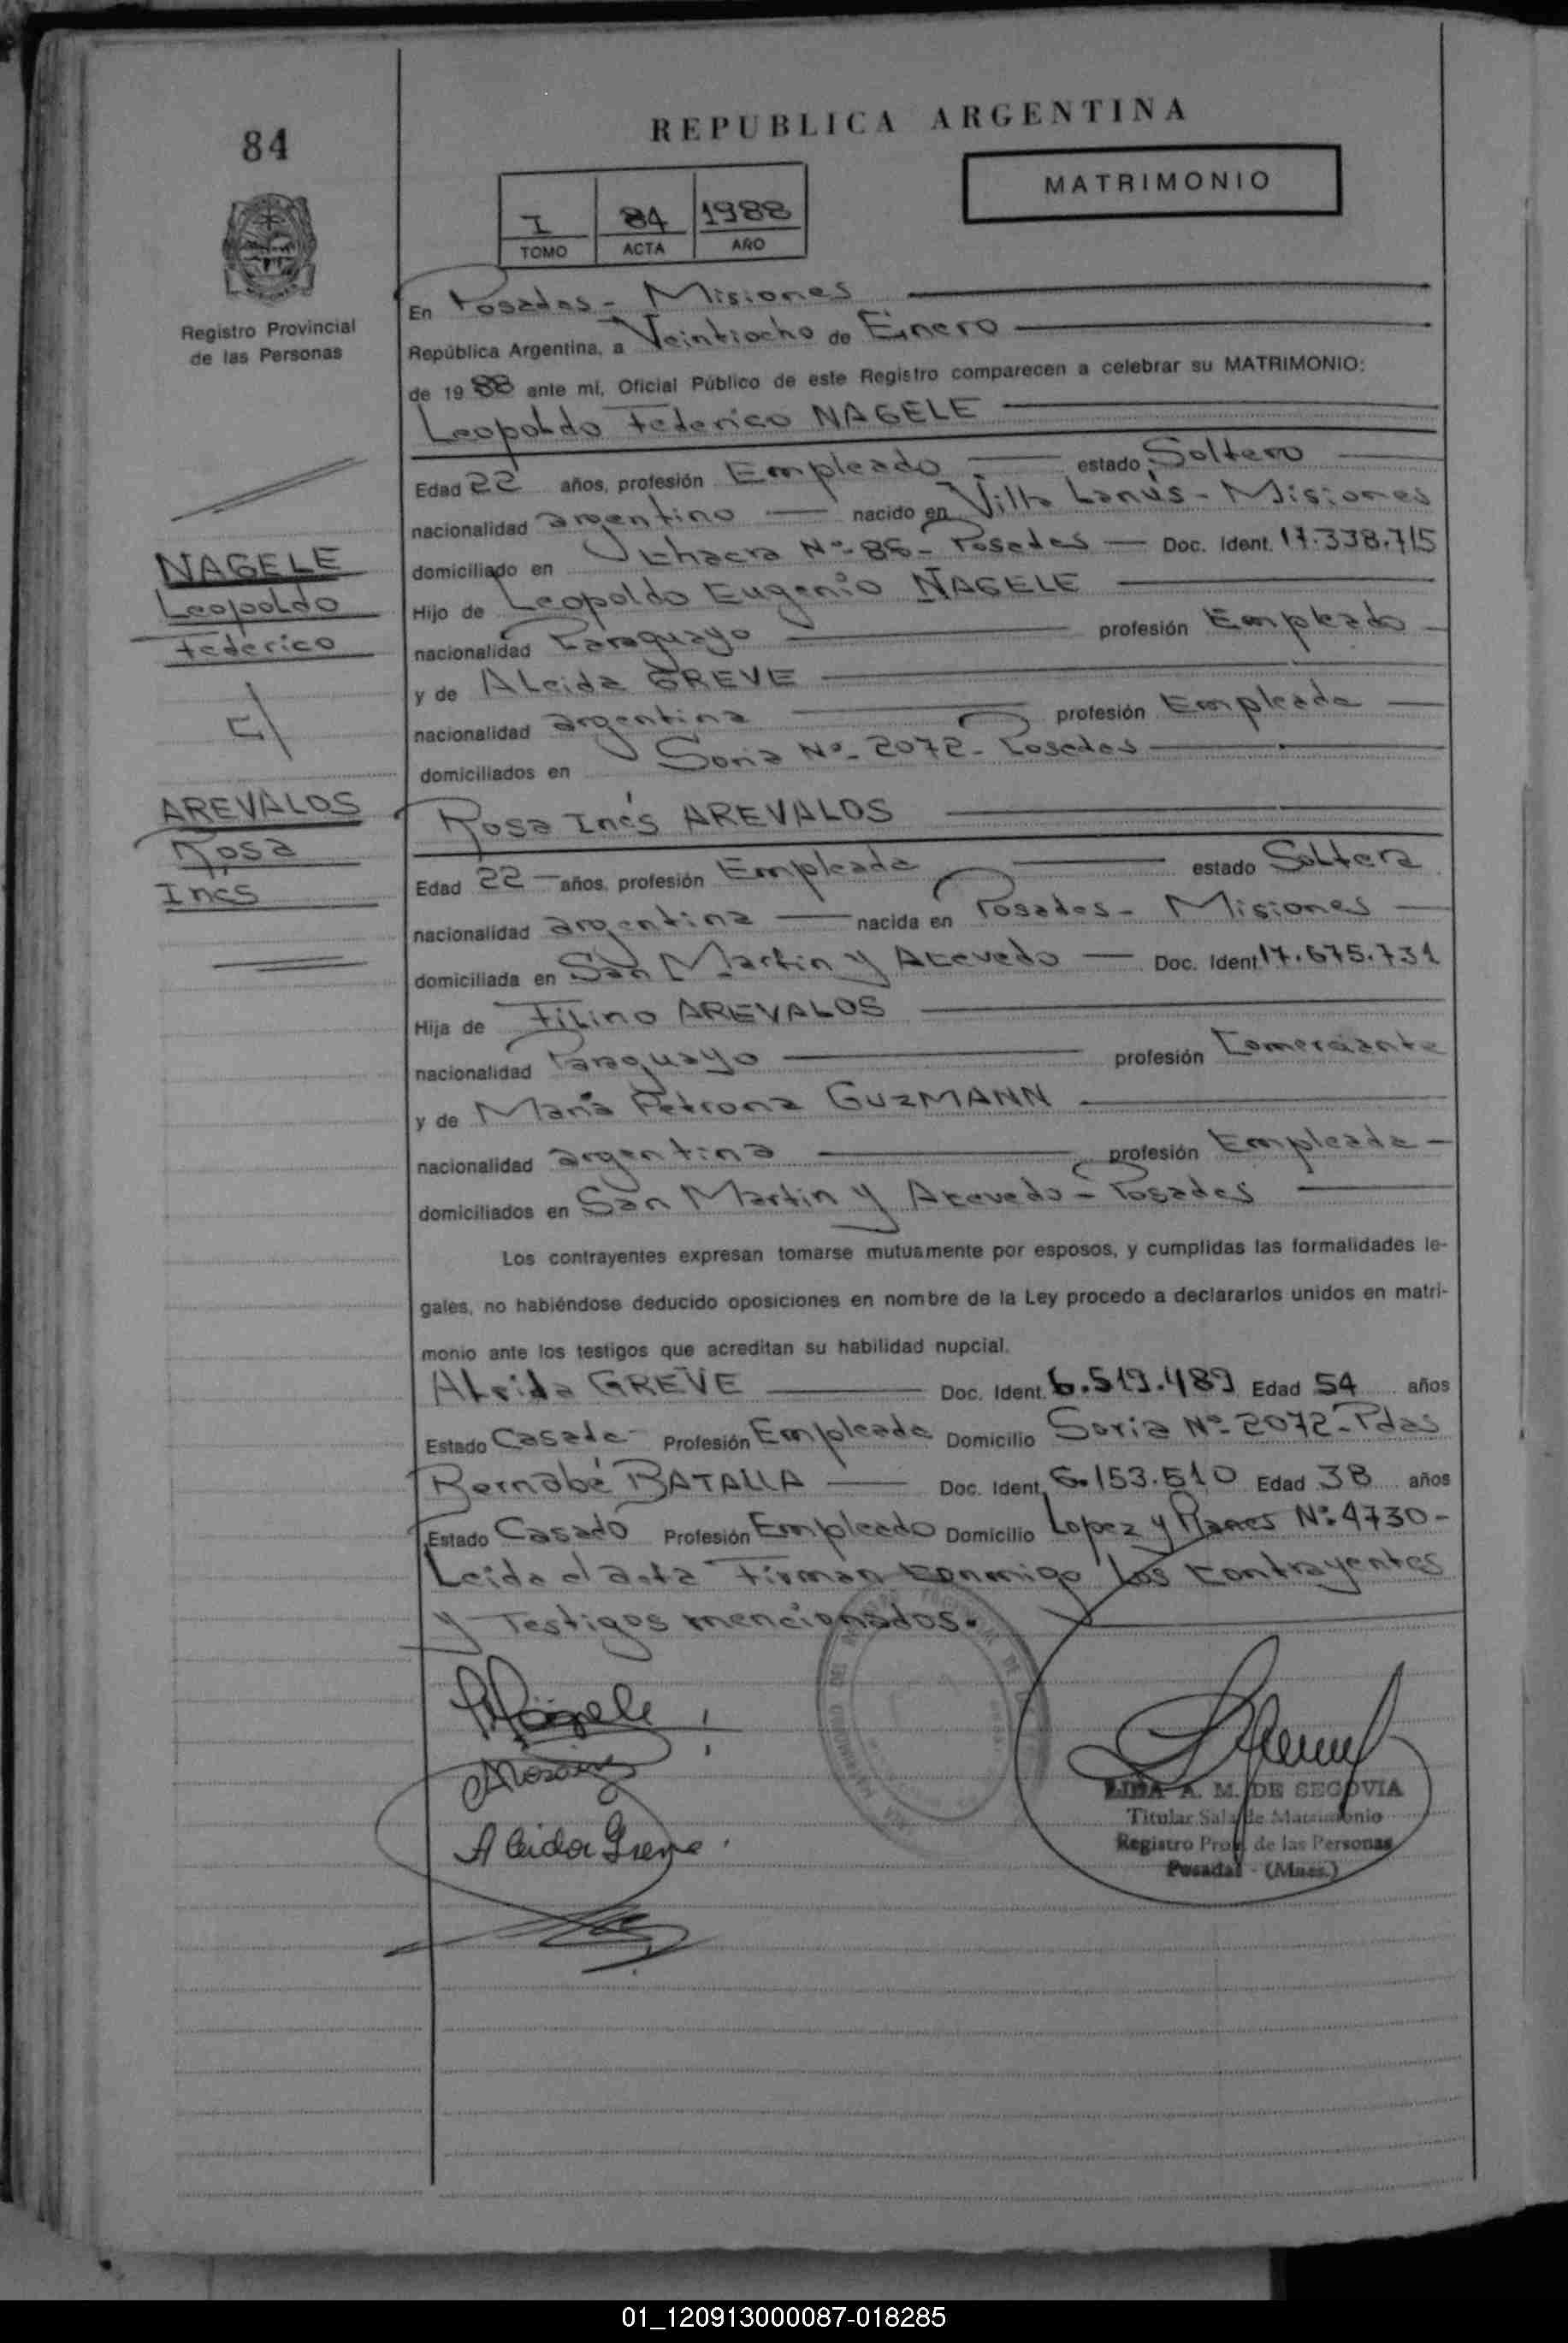 84
REPUBLICA ARGENTINA
MATRIMONIO
I 84 1988
TOMO ACTA AÑO
Registro Provincial
de las Personas
En Posadas - Misiones
República Argentina, a Veintiocho de Enero
de 1988 ante mí, Oficial Público de este Registro comparecen a celebrar su MATRIMONIO:
Leopoldo Federico NAGELE
Edad 22 años, profesión Empleado estado Soltero
nacionalidad argentino nacido en Villa Lanús - Misiones
domiciliado en Chacra Nº- 86- Posadas Doc. Ident. 17.338.715
Hijo de Leopoldo Eugenio NAGELE
nacionalidad Paraguayo profesión Empleado
y de Alcida GREVE
nacionalidad argentina profesión Empleada
domiciliados en Soria Nº- 2072- Posadas
NAGELE
Leopoldo
Federico
c/
AREVALOS
Rosa
Inés
Rosa Inés AREVALOS
Edad 22 años, profesión Empleada estado Soltera
nacionalidad argentina nacida en Posadas- Misiones
domiciliada en San Martin y Acevedo Doc. Ident 17.675.731
Hija de Filino AREVALOS
nacionalidad Paraguayo profesión Comerciante
y de María Petrona GUZMANN
nacionalidad argentina profesión Empleada
domiciliados en San Martin y Acevedo - Posadas
Los contrayentes expresan tomarse mutuamente por esposos, y cumplidas las formalidades le-
gales, no habiéndose deducido oposiciones en nombre de la Ley procedo a declararlos unidos en matri-
monio ante los testigos que acreditan su habilidad nupcial.
Alcida GREVE Doc. Ident. 6.519.489 Edad 54 años
Estado Casada Profesión Empleada Domicilio Soria Nº- 2072- Pdas
Bernabé BATALLA Doc. Ident. 6.153.510 Edad 38 años
Estado Casado Profesión Empleado Domicilio Lopez y Planes Nº 4730-
Leida el acta Firman conmigo los contrayentes
y Testigos mencionados.
Alcida Greve
LIDIA A. M. DE SEGOVIA
Titular Sala de Matrimonio
Registro Prov. de las Personas
Posadas - (Mnes.)
01_120913000087-018285